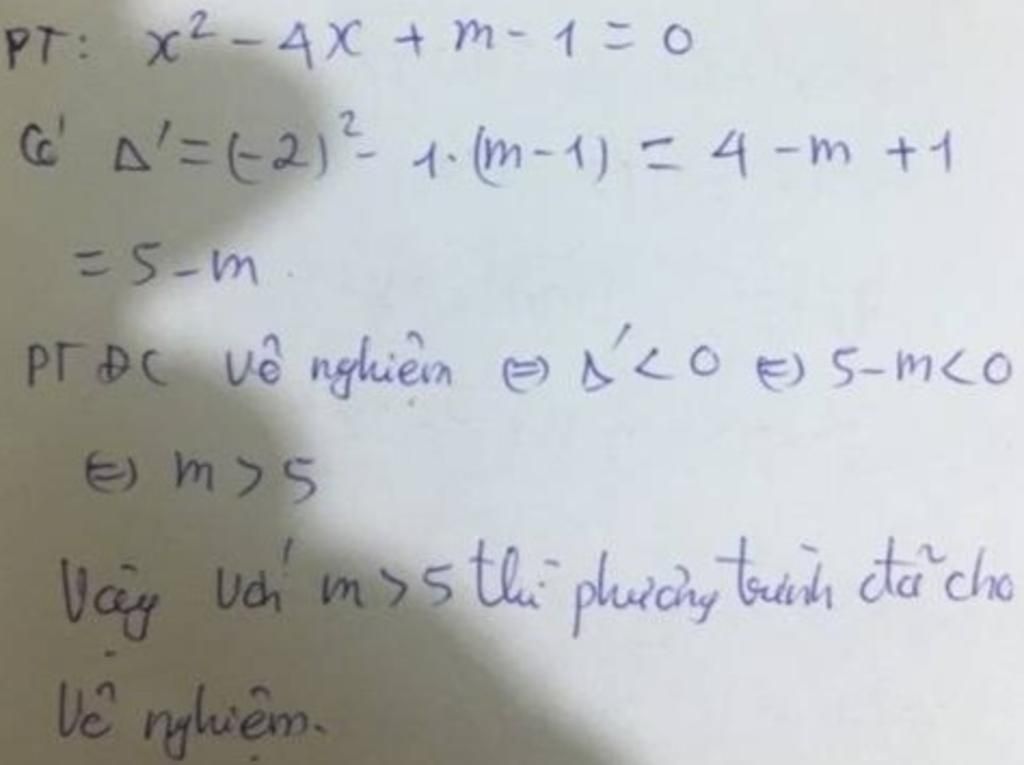 PT: x² - 4x + m - 1 = 0
Có Δ' = (-2)² - 1·(m-1) = 4 - m + 1
= 5 - m.
PT ĐC vô nghiệm ⇔ Δ' < 0 ⇔ 5-m < 0
⇔ m > 5
Vậy với m > 5 thì phương trình đã cho
Vô nghiệm.